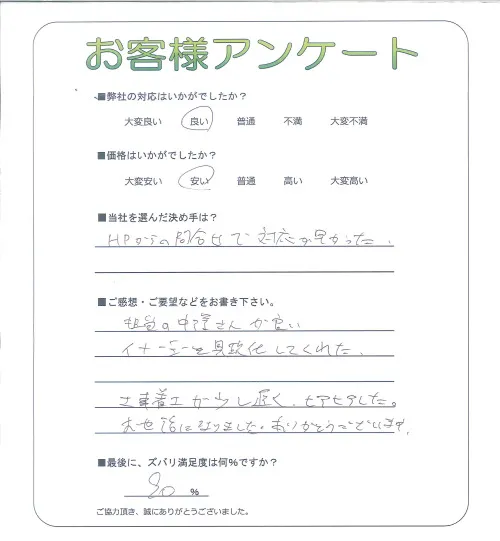 お客様アンケート
■弊社の対応はいかがでしたか？
大変良い 良い 普通 不満 大変不満
■価格はいかがでしたか？
大変安い 安い 普通 高い 大変高い
■当社を選んだ決め手は？
HPからの問合せで対応が早かった。
■ご感想・ご要望などをお書き下さい。
担当の中澤さんが良い
イメージを具現化してくれた。
工事着工が少し遅く、ヒヤヒヤした。
お世話になりました。ありがとうございます。
■最後に、ズバリ満足度は何%ですか？
90 %
ご協力頂き、誠にありがとうございました。